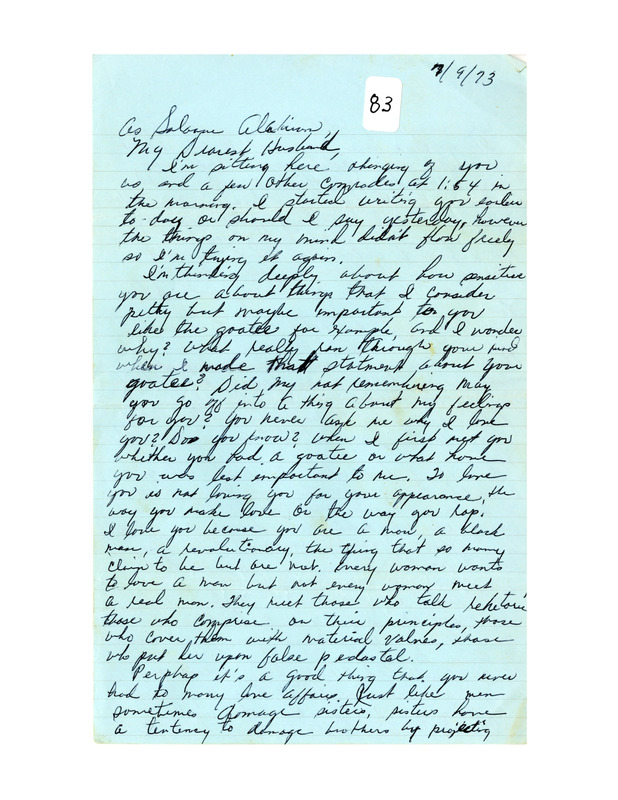 7/9/73
83
As Salaam Alakium,
My Dearest Husband,
I'm sitting here of you
us, and a few other Comrades at 1:54 in
the morning. I started writing you earlier
to-day or should I say yesterday, however
the things on my mind didn't flow freely
so I'm trying it again.
I'm thinking deeply about how sensitive
you are about things that I consider
petty but maybe important to you
like the goatee for example, and I wonder
why? What really ran through your mind
when I made that statment about your
goatee? Did my not remembering may
you go off into a thing about my feelings
for you? You never ask me why I love
you? Do you know? When I first met you
whether you had a goatee or what have
you was lest important to me. To love
you is not loving you for your appearance, the
way you make love or the way you rap.
I love you because you are a man, a black
man, a revolutionary, the thing that so many
claim to be but are not. Every woman wants
to love a man but not every woman meet
a real man. They meet those who talk rehtoric
those who comprise on their principles, those
who cover them with material values, those
who put her upon false pedastal.
Perphaps it's a good thing that you never
had to many love affairs. Just like men
sometimes damage sisters, sisters have
a tentency to damage brothers by projecting